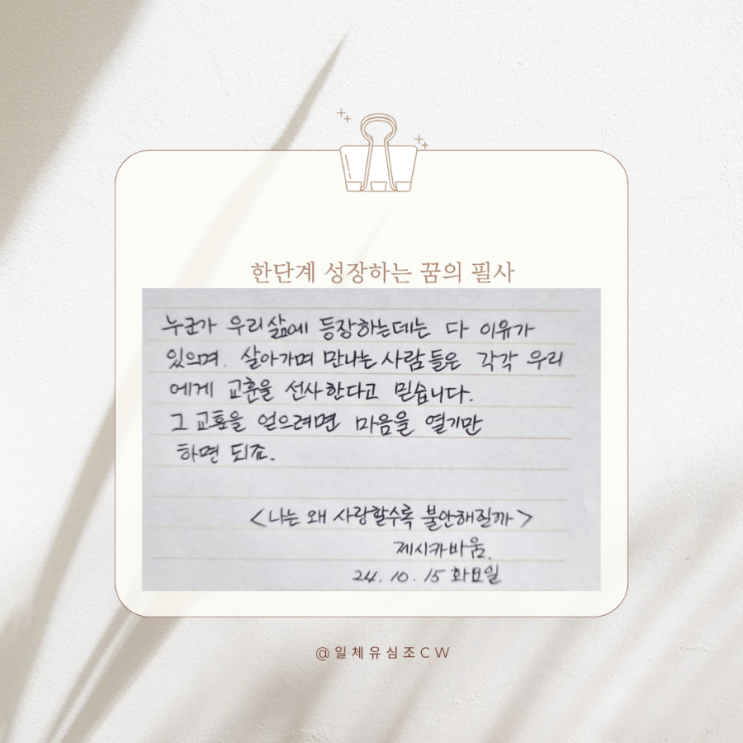 한단계 성장하는 꿈의 필사
누군가 우리삶에 등장하는데는 다 이유가
있으며. 살아가며 만나는 사람들은 각각 우리
에게 교훈을 선사한다고 믿습니다.
그 교훈을 얻으려면 마음을 열기만
하면 되죠.
<나는 왜 사랑할수록 불안해질까>
제시카바움.
24. 10. 15 화요일
@일체유심조CW